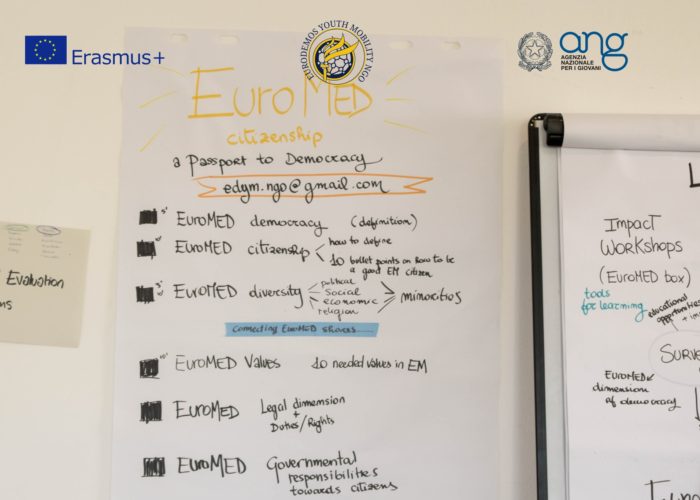 Erasmus+
EURODEMOS YOUTH MOBILITY NGO
ang
AGENZIA
NAZIONALE
PER I GIOVANI
EUROMED
citizenship
a Passport to Democracy
edym.ngo@gmail.com
EUROMED democracy (definition)
EUROMED citizenship
how to define
10 bullet points on how to be
a good EM citizen
EUROMED diversity
political
social
economic
religion
minorities
connecting EUROMED shores
EUROMED Values 10 needed values in EM
EUROMED Legal dimension
+
Duties/Rights
EUROMED Governmental
responsibilities
towards citizens
Evaluation
IMPACT
WORKSHOPS
(EUROMED box)
tools
for learning
educational
opportunities
EUROMED
dimension
of democracy